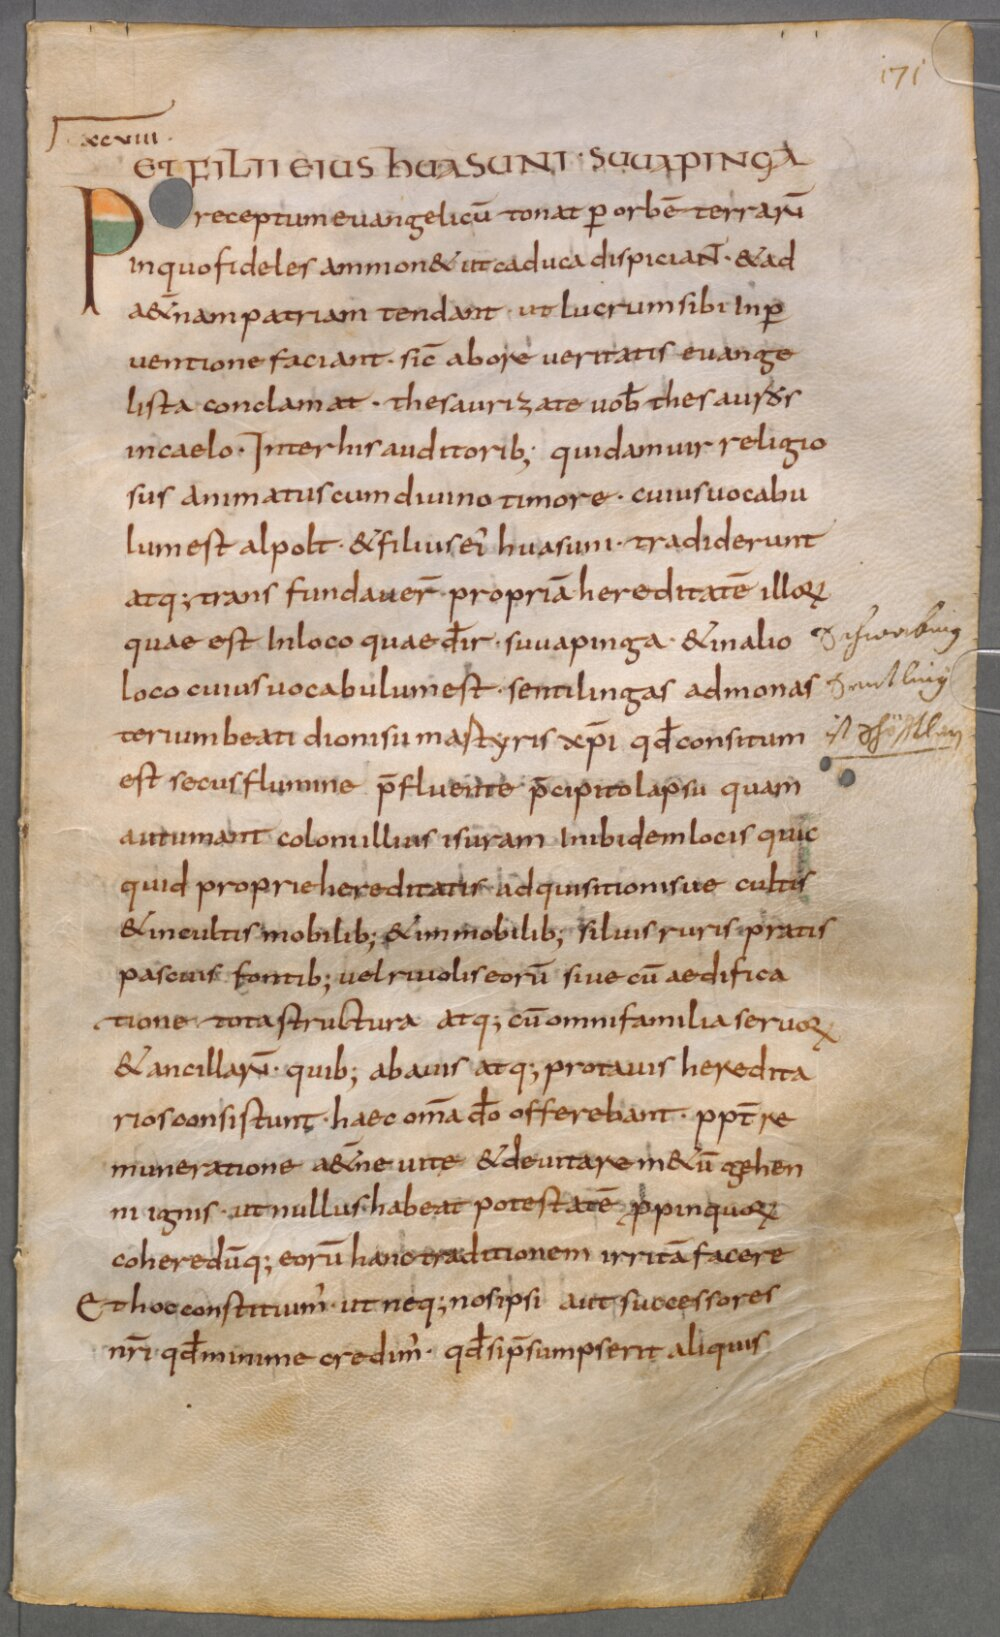 171
xcviii·
ET FILII EIUS hUASUNI · SUUAPINGA
Preceptum euangelicū tonat ꝑ orbē terrarū
in quo fideles ammon& ut caduca dispiciaÑ · & ad
a&̄nam patriam tendant · ut lucrum sibi In ꝑ
uentione faciant · sic̄ ab ore ueritatis euange
lista conclamat · thesaurizate uob̄ thesauros
in caelo · Inter his auditorib; quidam uir religio
sus animatus cum diuino timore · cuius uocabu
lum est alpolt · & filius ei' huasuni · tradiderunt
atq; transfundauer̄ · propriā hereditatē illoꝝ
quae est In loco quae dr̄ · suuapinga · & in alio
Schwabing
loco cuius uocabulum est · sentilingas ad monas
Sentling
terium beati dionisii martyris xp̄i qđ consitum
ist Schöftlarn
est secus flumine p̄fluente p̄cipito lapsu quam
autumant coloni illius isuram In ibidem locis quic
quid proprie hereditatis adquisitionisue cultis
& incultis mobilib; & immobilib; siluis ruris pratis
pascuis fontib; uel riuolis eorū siue cū aedifica
tione tota structura atq; cū omni familia seruoꝝ
& ancillarū · quib; abauis atq; protauis heredita
rios consistunt · haec om̄a do̅ offerebant · ppt̄ re
muneratione a&̄ne uite & deuitare m&ū gehen
ni ignis · ut nullus habeat potestatē ꝓpinquoꝝ
coheredūq; eorū hanc traditionem irritā facere
Et hoc constituim' · ut neq; nos ipsi aut successores
nr̄i qđ minime credim' · qđ si p̄sumpserit aliquis